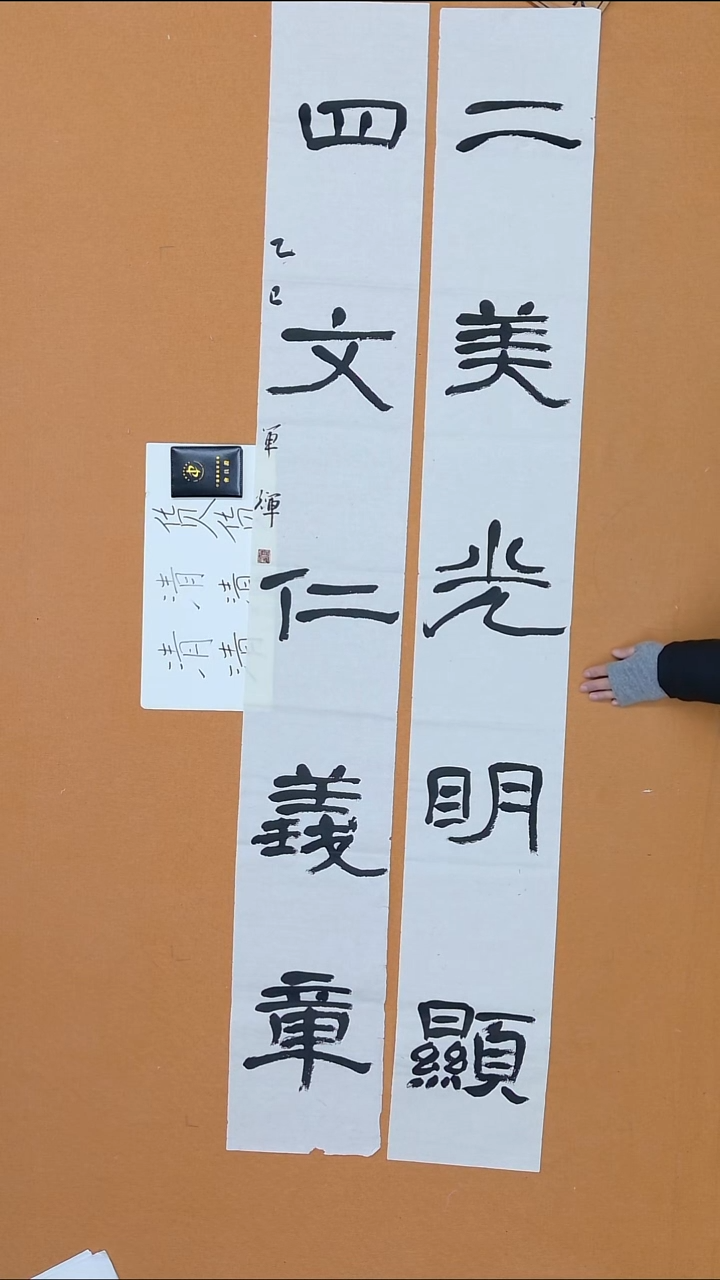 二美光明顯
四文仁義章
乙巳 軍輝
清清
清清